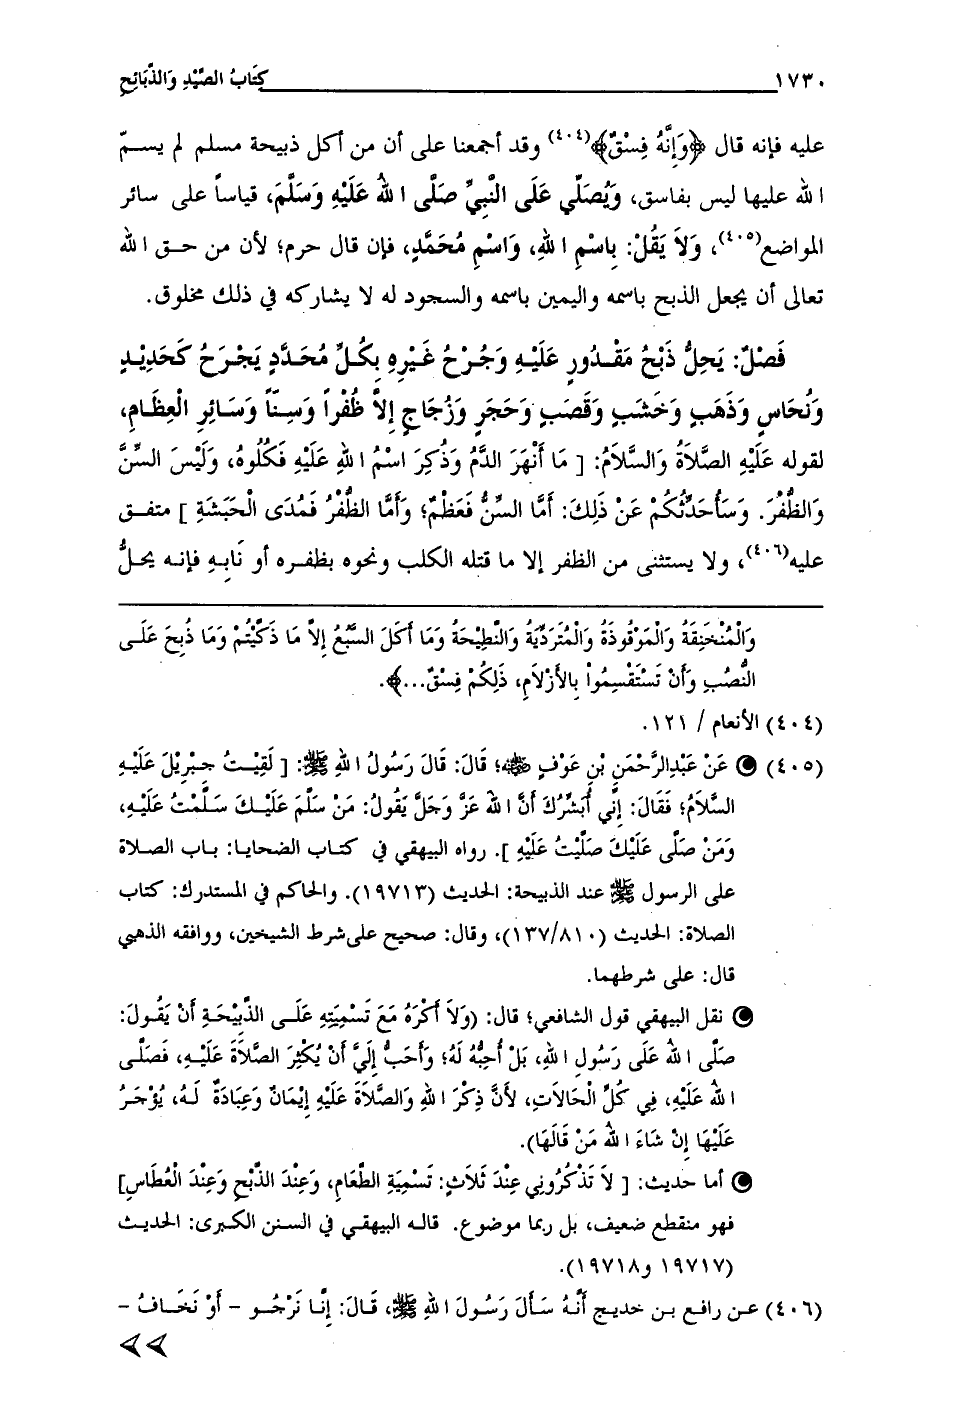 ١٧٣٠ كِتَابُ الصَّيْدِ وَالذَّبَائِحِ
عليه فإنه قال ﴿وَإِنَّهُ فِسْقٌ﴾(٤٠٤) وقد أجمعنا على أن من أكل ذبيحة مسلم لم يسمّ
الله عليها ليس بفاسق، وَيُصَلِّي عَلَى النَّبِيِّ صَلَّى اللهُ عَلَيْهِ وَسَلَّمَ، قياساً على سائر
المواضع(٤٠٥)، وَلاَ يَقُلْ: بِاسْمِ اللهِ، وَاسْمِ مُحَمَّدٍ، فإن قال حرم؛ لأن من حق الله
تعالى أن يجعل الذبح باسمه واليمين باسمه والسجود له لا يشاركه في ذلك مخلوق.
فَصْلٌ: يَحِلُّ ذَبْحُ مَقْدُورٍ عَلَيْهِ وَجُرْحُ غَيْرِهِ بِكُلِّ مُحَدَّدٍ يَجْرَحُ كَحَدِيْدٍ
وَنُحَاسٍ وَذَهَبٍ وَخَشَبٍ وَقَصَبٍ وَحَجَرٍ وَزُجَاجٍ إِلاَّ ظُفْراً وَسِنّاً وَسَائِرِ الْعِظَامِ،
لقوله عَلَيْهِ الصَّلاَةُ وَالسَّلاَمُ: [ مَا أَنْهَرَ الدَّمُ وَذُكِرَ اسْمُ اللهِ عَلَيْهِ فَكُلُوهُ، وَلَيْسَ السِّنَّ
وَالظُّفْرَ. وَسَأُحَدِّثُكُمْ عَنْ ذَلِكَ: أَمَّا السِّنُّ فَعَظْمٌ؛ وَأَمَّا الظُّفْرُ فَمُدَى الْحَبَشَةِ ] متفق
عليه(٤٠٦)، ولا يستثنى من الظفر إلا ما قتله الكلب ونحوه بظفره أو نَابِهِ فإنه يحلُّ
وَالْمُنْخَنِقَةُ وَالْمَوْقُوذَةُ وَالْمُتَرَدِّيَةُ وَالنَّطِيْحَةُ وَمَا أَكَلَ السَّبُعُ إِلاَّ مَا ذَكَّيْتُمْ وَمَا ذُبِحَ عَلَى
النُّصُبِ وَأَنْ تَسْتَقْسِمُواْ بِالأَزْلاَمِ، ذَلِكُمْ فِسْقٌ...﴾.
(٤٠٤) الأنعام / ١٢١.
(٤٠٥) عَنْ عَبْدِالرَّحْمَنِ بْنِ عَوْفٍ ؓ؛ قَالَ: قَالَ رَسُولُ اللهِ ﷺ: [ لَقِيْتُ جِبْرِيْلَ عَلَيْهِ
السَّلاَمُ؛ فَقَالَ: إِنِّي أُبَشِّرُكَ أَنَّ اللهَ عَزَّ وَجَلَّ يَقُولُ: مَنْ سَلَّمَ عَلَيْكَ سَلَّمْتُ عَلَيْهِ،
وَمَنْ صَلَّى عَلَيْكَ صَلَّيْتُ عَلَيْهِ ]. رواه البيهقي في كتاب الضحايا: باب الصلاة
على الرسول ﷺ عند الذبيحة: الحديث (١٩٧١٣). والحاكم في المستدرك: كتاب
الصلاة: الحديث (١٣٧/٨١٠)، وقال: صحيح على شرط الشيخين، ووافقه الذهبي
قال: على شرطهما.
نقل البيهقي قول الشافعي؛ قال: (وَلاَ أَكْرَهُ مَعَ تَسْمِيَتِهِ عَلَى الذَّبِيْحَةِ أَنْ يَقُولَ:
صَلَّى اللهُ عَلَى رَسُولِ اللهِ، بَلْ أُحِبُّهُ لَهُ؛ وَأَحَبُّ إِلَيَّ أَنْ يُكْثِرَ الصَّلاَةَ عَلَيْهِ، فَصَلَّى
اللهُ عَلَيْهِ، فِي كُلِّ الْحَالاَتِ، لأَنَّ ذِكْرَ اللهِ وَالصَّلاَةَ عَلَيْهِ إِيْمَانٌ وَعِبَادَةٌ لَهُ، يُؤْجَرُ
عَلَيْهَا إِنْ شَاءَ اللهُ مَنْ قَالَهَا).
أما حديث: [ لاَ تَذْكُرُونِي عِنْدَ ثَلاَثٍ: تَسْمِيَةِ الطَّعَامِ، وَعِنْدَ الذَّبْحِ وَعِنْدَ الْعُطَاسِ]
فهو منقطع ضعيف، بل ربما موضوع. قاله البيهقي في السنن الكبرى: الحديث
(١٩٧١٧ و١٩٧١٨).
(٤٠٦) عن رافع بن خديج أَنَّهُ سَأَلَ رَسُولَ اللهِ ﷺ، قَالَ: إِنَّا نَرْجُو - أَوْ نَخَافُ -